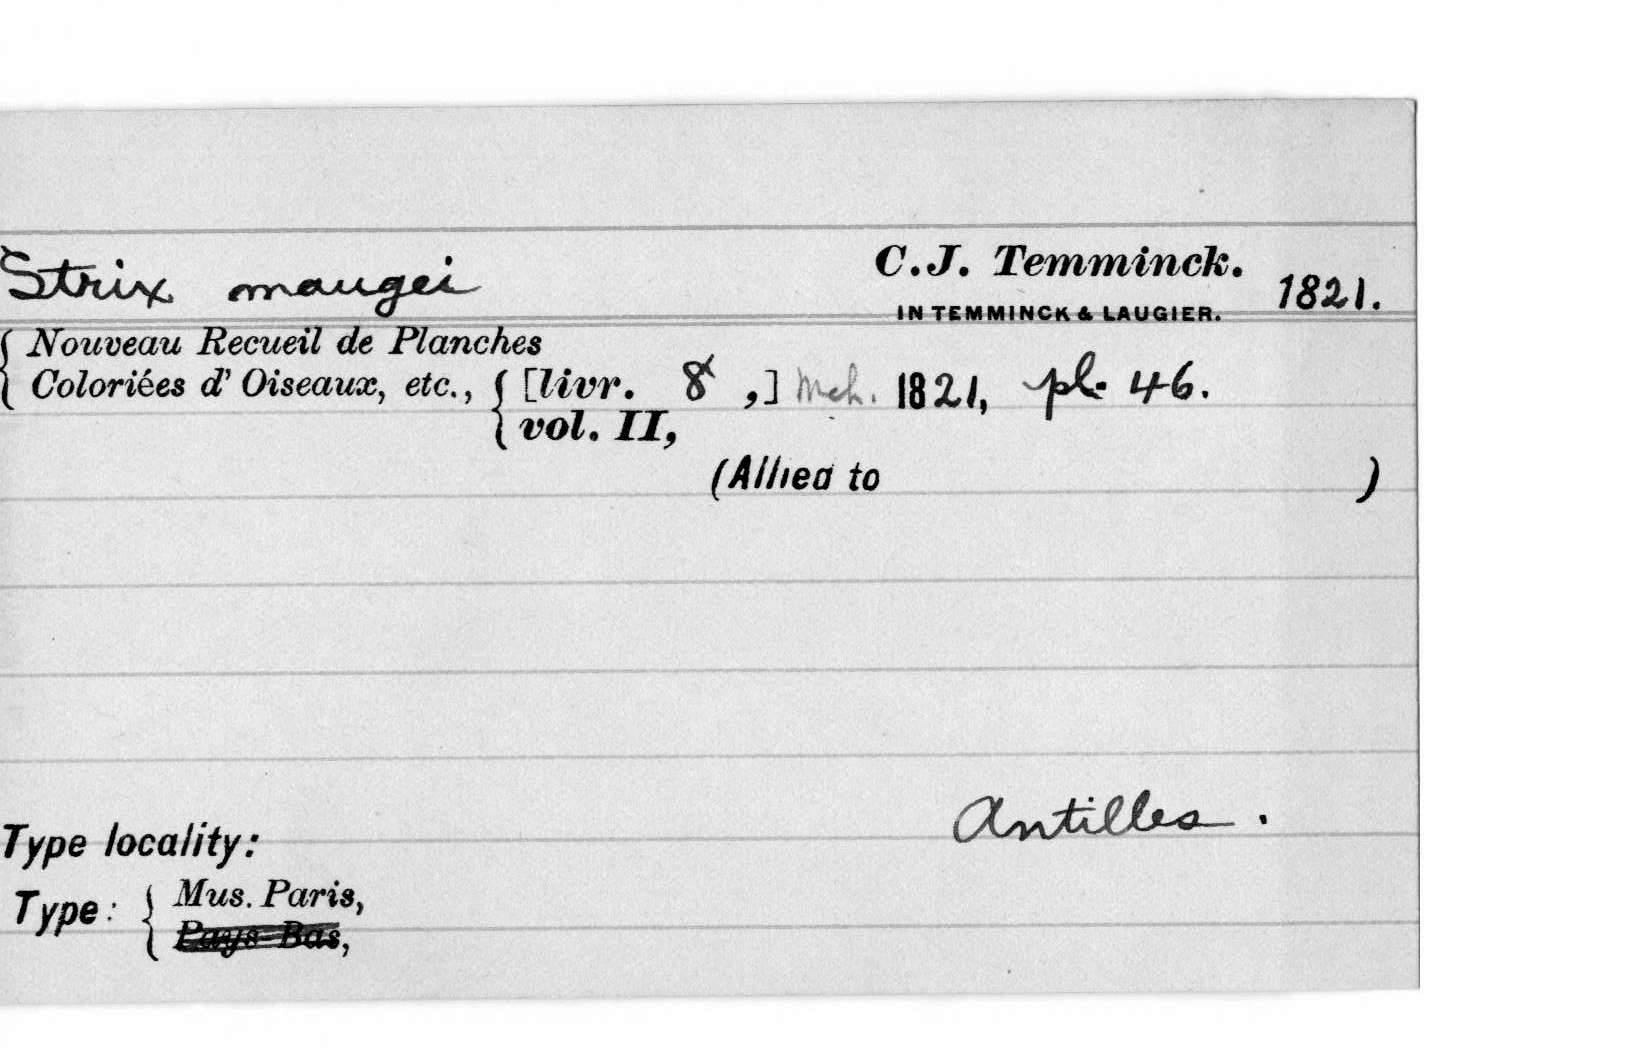 Strix maugei C.J. Temminck. 1821.
IN TEMMINCK & LAUGIER.
Nouveau Recueil de Planches
Coloriées d' Oiseaux, etc., [livr. 8 ,] Mch. 1821, pl. 46.
vol. II,
(Allied to )
Antilles.
Type locality:
Type: Mus. Paris,
Pays-Bas,